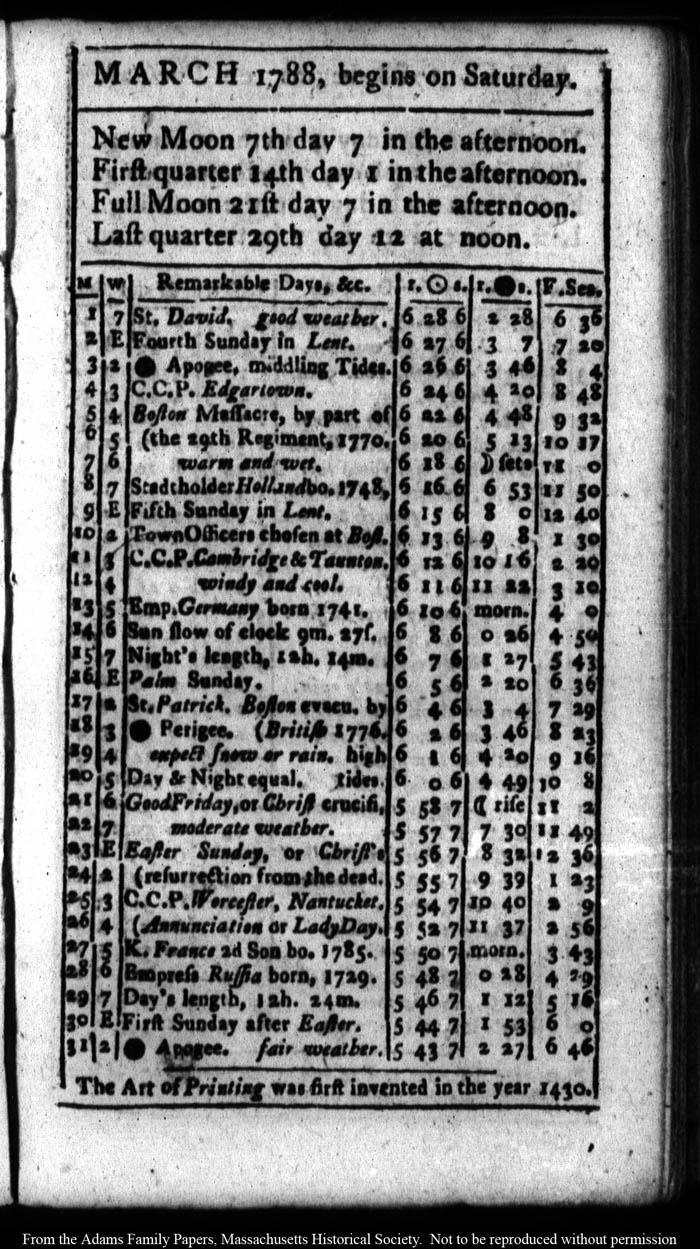 MARCH 1788, begins on Saturday.
New Moon 7th day 7 in the afternoon.
Firſt quarter 14th day 1 in the afternoon.
Full Moon 21ſt day 7 in the afternoon.
Laſt quarter 29th day 12 at noon.
M W Remarkable Days, &c. r. ☉ s. r. ● s. F. Sea.
1 7 St. David. good weather. 6 28 6 2 28 6 36
2 E Fourth Sunday in Lent. 6 27 6 3 7 7 20
3 2 ● Apogee, middling Tides. 6 26 6 3 46 8 4
4 3 C.C.P. Edgartown. 6 24 6 4 20 8 48
5 4 Boſton Maſſacre, by part of 6 22 6 4 48 9 32
6 5 (the 29th Regiment, 1770. 6 20 6 5 13 10 17
7 6 warm and wet. 6 18 6 ☽ ſets 11 0
8 7 Stadtholder Holland bo. 1748, 6 16 6 6 53 11 50
9 E Fifth Sunday in Lent. 6 15 6 8 0 12 40
10 2 Town Officers choſen at Boſt. 6 13 6 9 8 1 30
11 3 C.C.P. Cambridge & Taunton. 6 12 6 10 16 2 20
12 4 windy and cool. 6 11 6 11 22 3 10
13 5 Emp. Germany born 1741. 6 10 6 morn. 4 0
14 6 Sun ſlow of clock 9m. 27ſ. 6 8 6 0 26 4 50
15 7 Night's length, 12h. 14m. 6 7 6 1 27 5 43
16 E Palm Sunday. 6 5 6 2 20 6 36
17 2 St. Patrick. Boſton evacu. by 6 4 6 3 4 7 29
18 3 ● Perigee. (Britiſh 1776. 6 2 6 3 46 8 23
19 4 expect ſnow or rain. high 6 1 6 4 20 9 16
20 5 Day & Night equal. tides. 6 0 6 4 49 10 8
21 6 Good Friday, or Chriſt crucifi, 5 58 7 ☾ riſe 11 2
22 7 moderate weather. 5 57 7 7 30 11 49
23 E Eaſter Sunday, or Chriſt's 5 56 7 8 32 12 36
24 2 (reſurrection from the dead. 5 55 7 9 39 1 23
25 3 C.C.P. Worceſter, Nantucket. 5 54 7 10 40 2 9
26 4 (Annunciation or Lady Day. 5 52 7 11 37 2 56
27 5 K. France 2d Son bo. 1785. 5 50 7 morn. 3 43
28 6 Empreſs Ruſſia born, 1729. 5 48 7 0 28 4 29
29 7 Day's length, 12h. 24m. 5 46 7 1 12 5 16
30 E Firſt Sunday after Eaſter. 5 44 7 1 53 6 0
31 2 ● Apogee. fair weather. 5 43 7 2 27 6 46
The Art of Printing was firſt invented in the year 1430.
From the Adams Family Papers, Massachusetts Historical Society. Not to be reproduced without permission